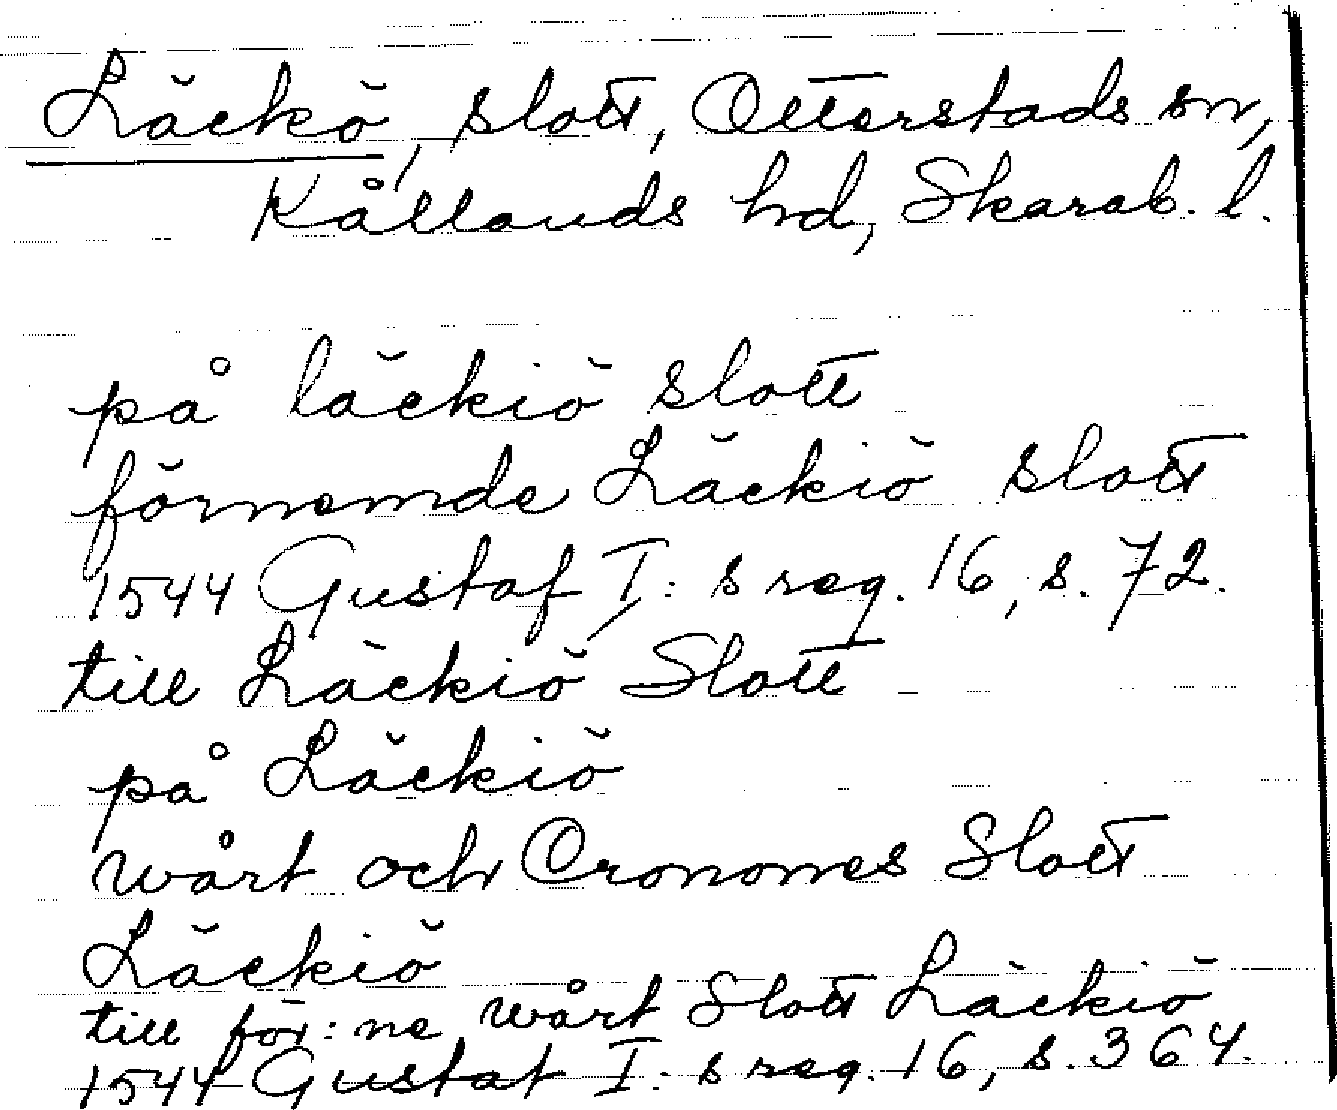 Läckö, slott, Otterstads sn,
Kållands hd, Skarab. l.
på läckiö slott
förnemde Läckiö slott
1544 Gustaf I: s reg. 16, s. 72.
till Läckiö Slott
på Läckiö
wårt och Cronones Slott
Läckiö
till för: ne wårt Slott Läckiö
1544 Gustaf I: s reg. 16, s. 364.